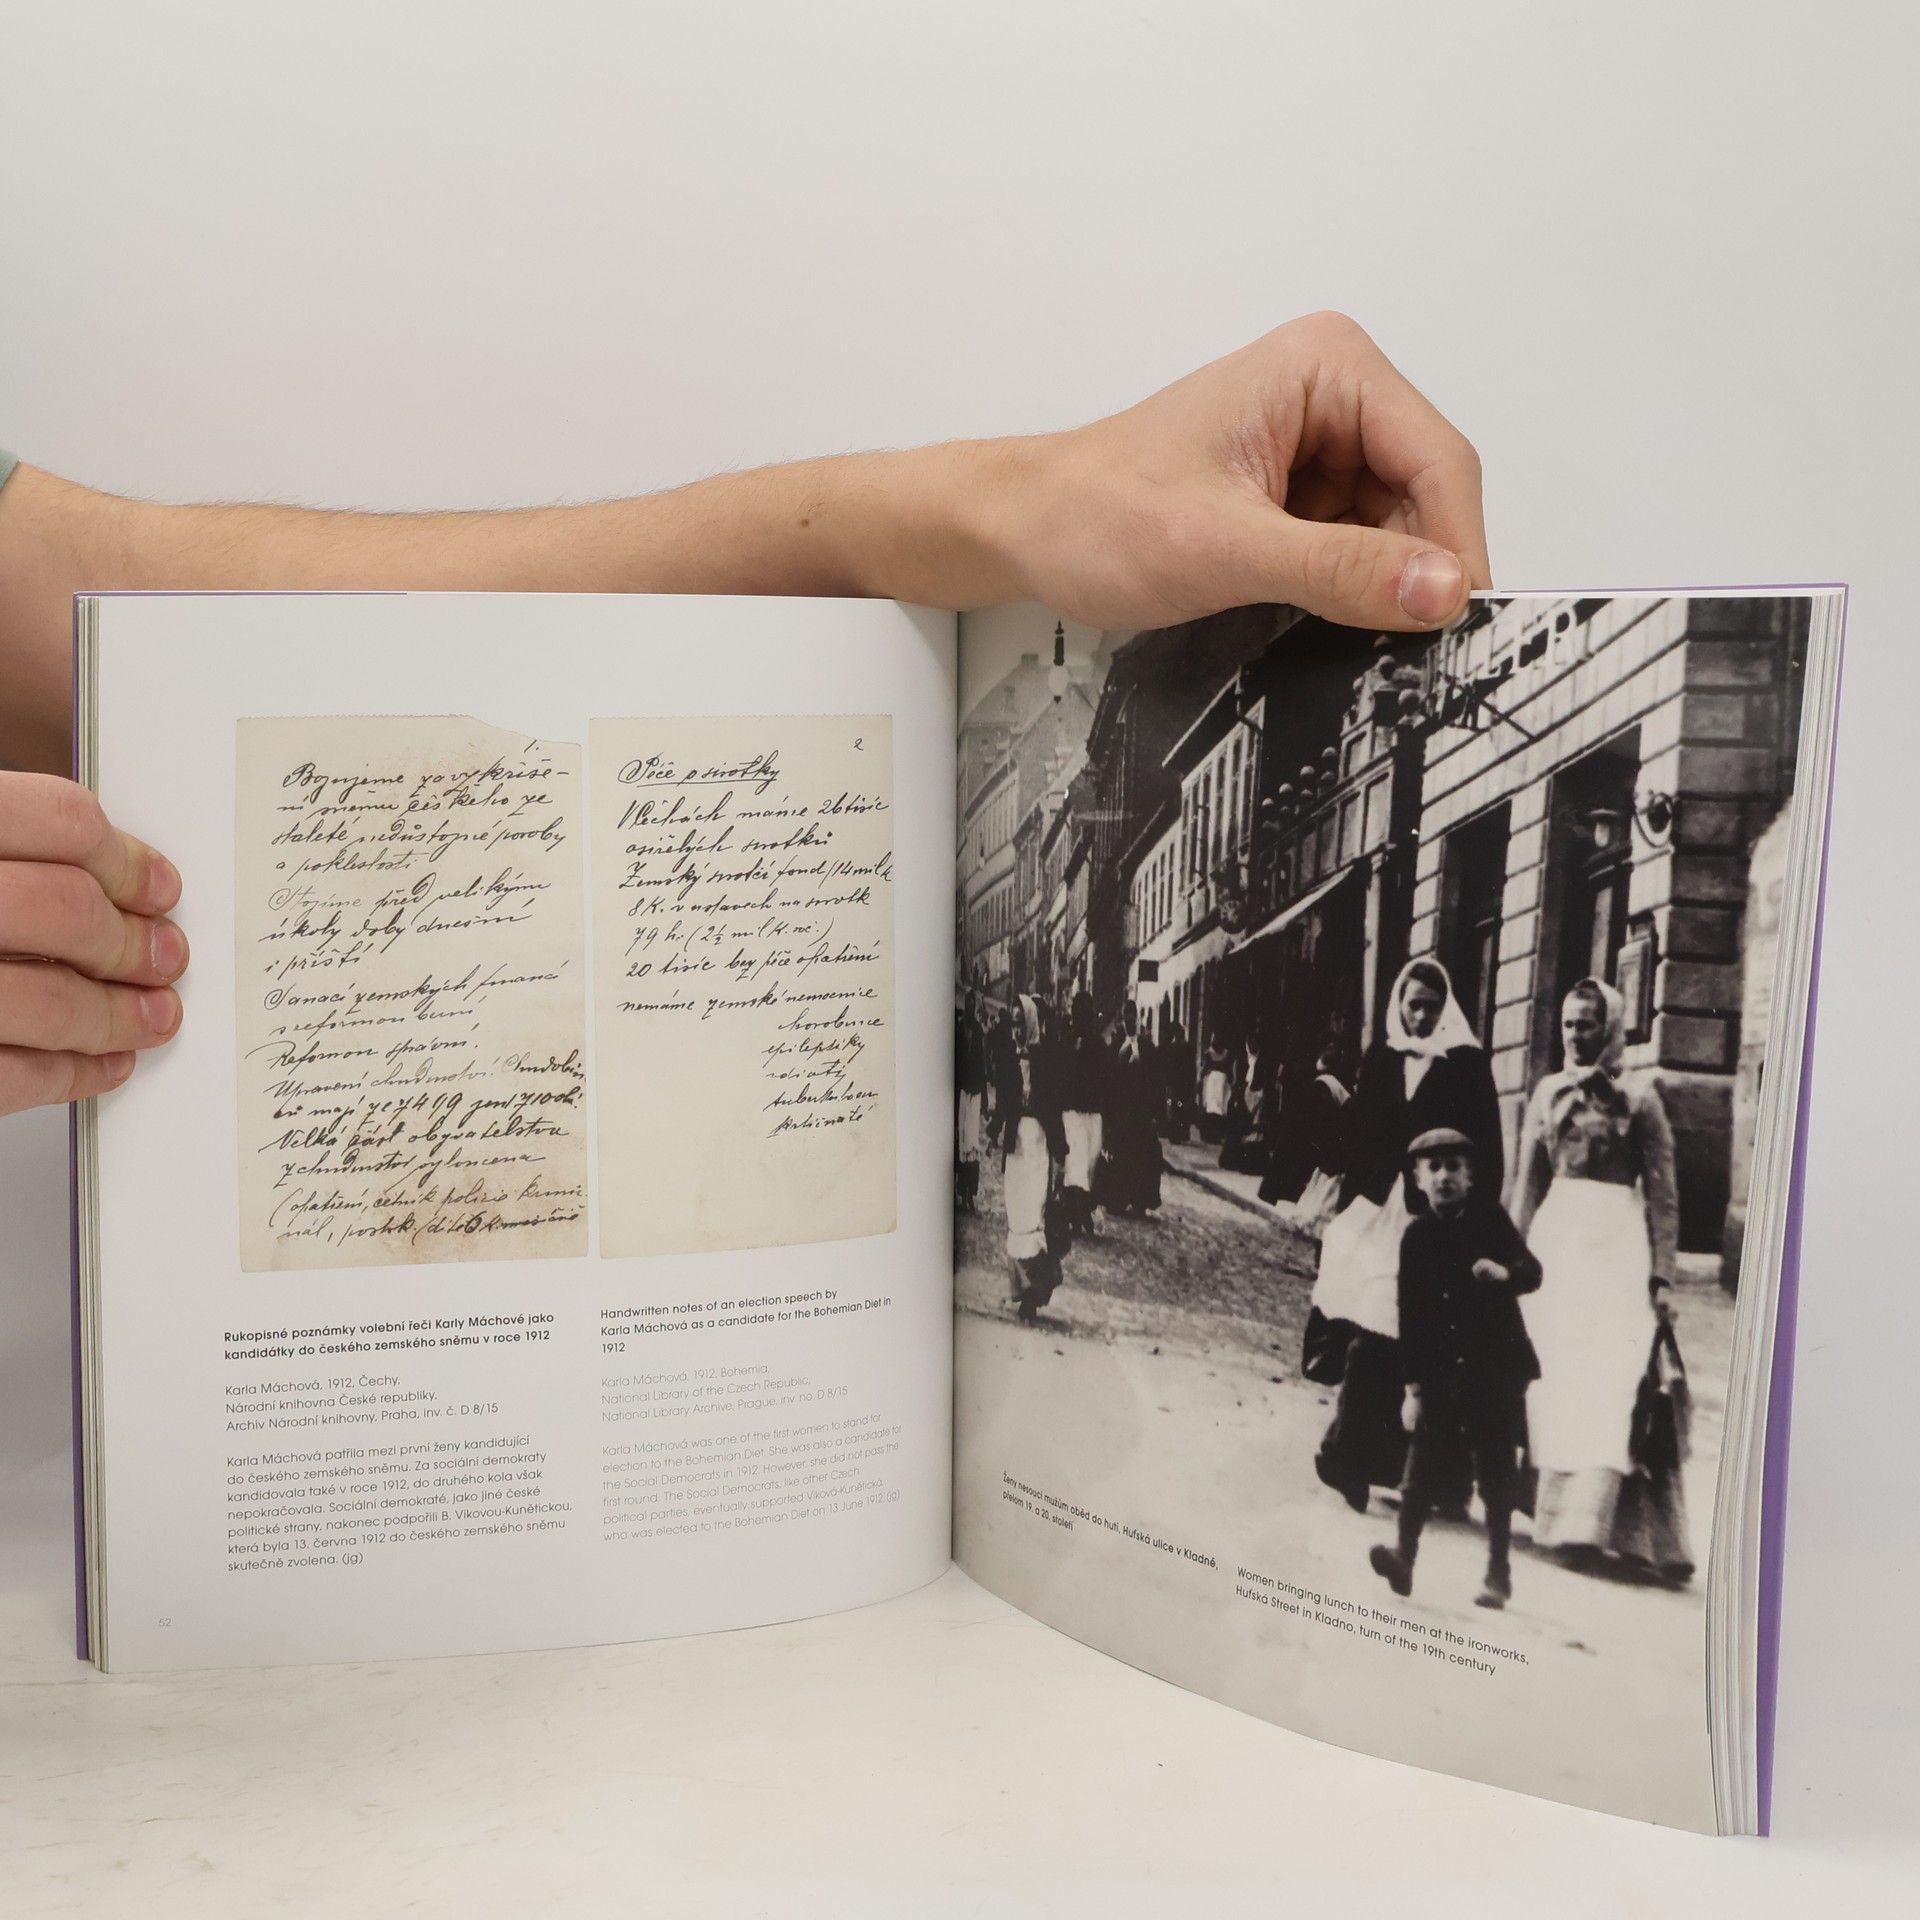 1.
Bojujeme za vzkříše-
ní  českého ze
staleté nedůstojné poroby
a pokleslosti
Stojíme před velikými
úkoly doby dnešní
i příští
Sanací zemských financí
s reformou berní
Reformou správní.
Upravení chudinství!
mají ze 7419 jen 710
Velká část obyvatelstva
z chudinství vyloučena
(opatření, četník policie krimi-
nál, postrk
2
Péče o sirotky
V Čechách máme 26 tisíc
osiřelých sirotků
Zemský sirotčí fond (14 mil K
8 K. v ústavech na sirotk
79 h. (2½ mil K. roč.)
20 tisíc bez péče opatření
nemáme zemské nemocnice
chorobince
epileptiky
idioty
Rukopisné poznámky volební řeči Karly Máchové jako
kandidátky do českého zemského sněmu v roce 1912
Karla Máchová, 1912, Čechy,
Národní knihovna České republiky,
Archiv Národní knihovny, Praha, inv. č. D 8/15
Karla Máchová patřila mezi první ženy kandidující
do českého zemského sněmu. Za sociální demokraty
kandidovala také v roce 1912, do druhého kola však
nepokračovala. Sociální demokraté, jako jiné české
politické strany, nakonec podpořili B. Vikovou-Kunětickou,
která byla 13. června 1912 do českého zemského sněmu
skutečně zvolena. (jg)
Handwritten notes of an election speech by
Karla Máchová as a candidate for the Bohemian Diet in
1912
Karla Máchová, 1912, Bohemia,
National Library of the Czech Republic,
National Library Archive, Prague, inv. no. D 8/15
Karla Máchová was one of the first women to stand for
election to the Bohemian Diet. She was also a candidate for
the Social Democrats in 1912. However, she did not pass the
first round. The Social Democrats, like other Czech
political parties, eventually supported Viková-Kunětická,
who was elected to the Bohemian Diet on 13 June 1912 (jg)
52
Ženy nesoucí mužům oběd do hutí, Huťská ulice v Kladně,
přelom 19. a 20. století
Women bringing lunch to their men at the ironworks,
Huťská Street in Kladno, turn of the 19th century